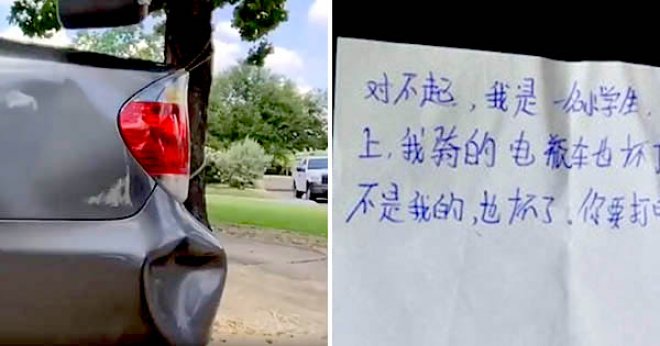 对不起，我是一名小学生，
上，我骑的电瓶车也坏了
不是我的，也坏了。你要打